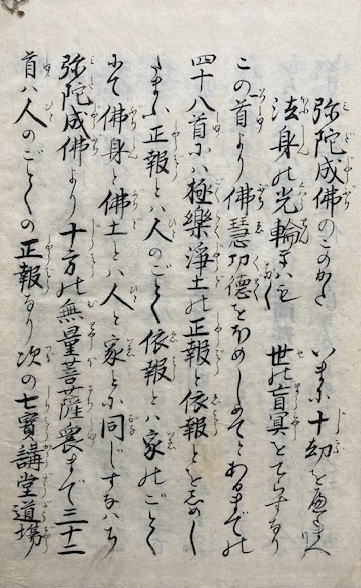 弥陀成佛のこのかた いまに十劫をへたまへり
法身の光輪きはもなく 世の盲冥をてらすなり
この首より佛慧功德をほめしめてとあるまでの
四十八首には極樂淨土の正報と依報とをあかし
たまふ正報とは人のごとく依報とは家のごとく
にて佛身と佛土とは人と家とに同じすなはち
弥陀成佛より十方の無量菩薩衆まで三十二
首は人のごとくの正報なり次の七寶講堂道場